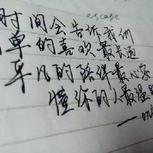 时间会告诉我们
简单的喜欢最长远
平凡的陪伴最心安
懂你的人最温暖